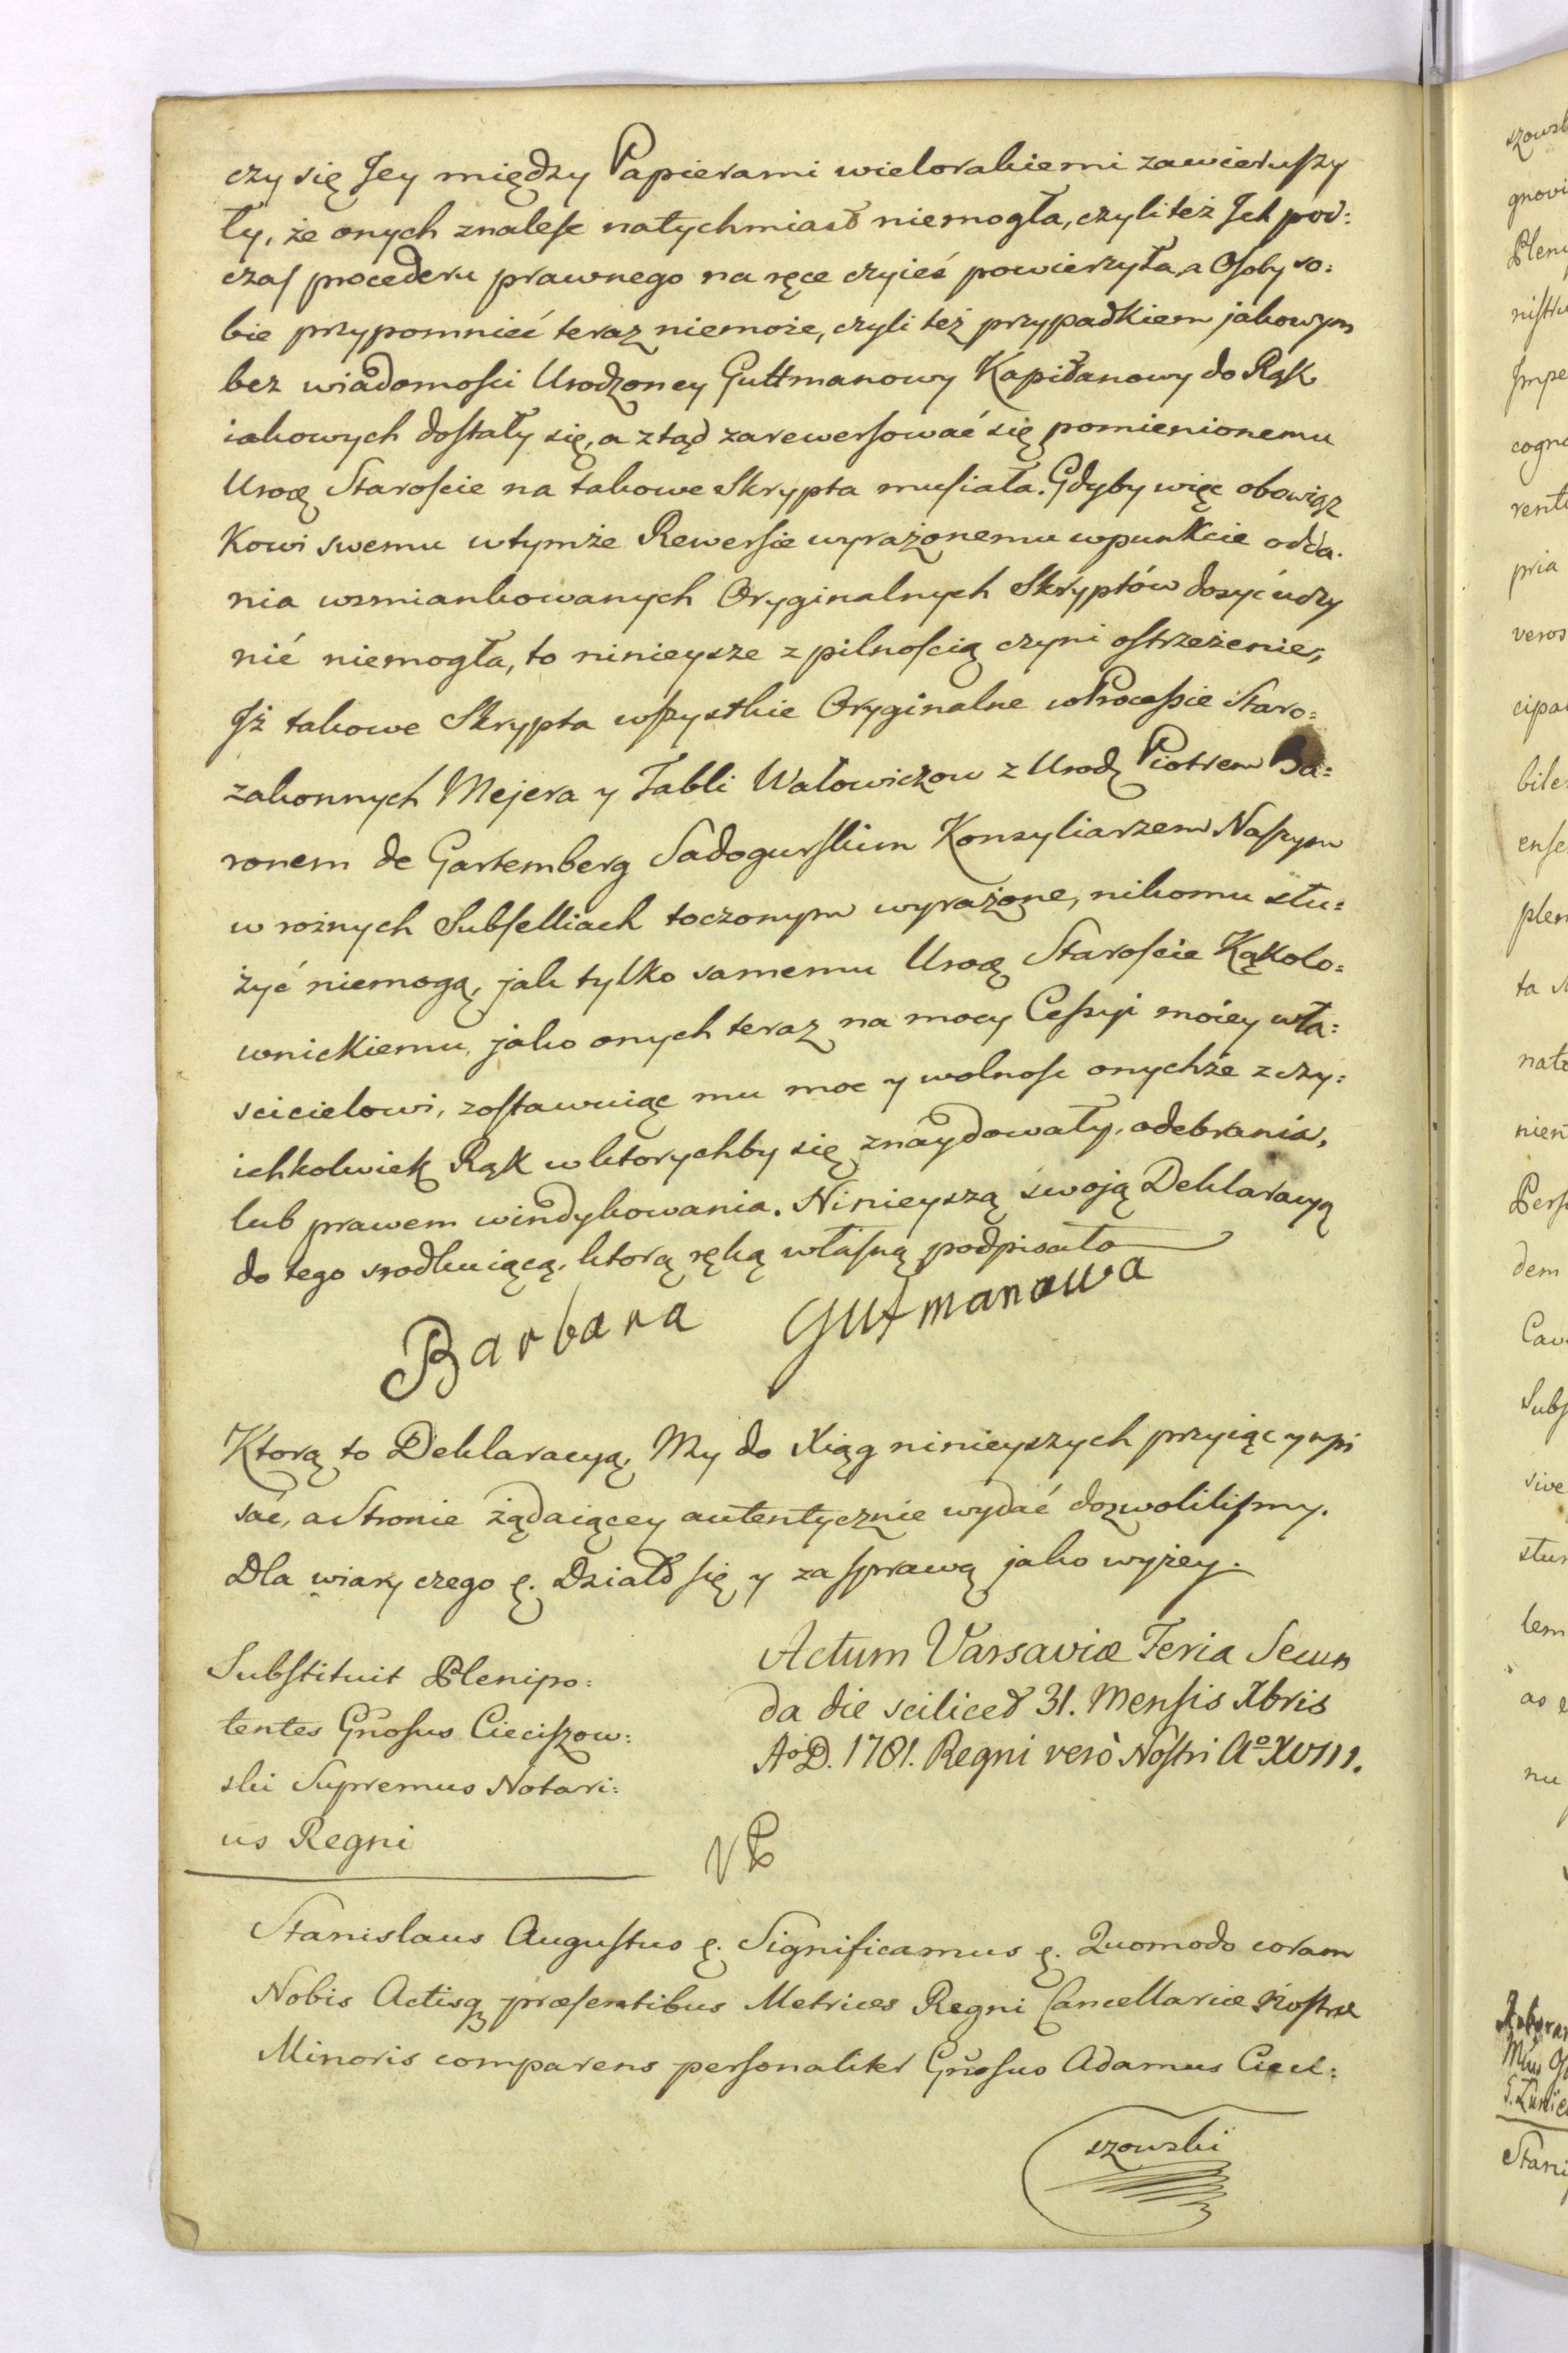 czy się Jey między Papierami wielorakiemi zawieruszy
ły, że onych znalesc natychmiast niemogła, czyli też Ich pod:
czas procederu prawnego na ręce czyieś powierzyła, a Osoby so:
bie przypomnieć teraz niemoże, czyli też przypadkiem jakowym
bez wiadomości Urodzoney Guttmanowy Kapitanowy do Rąk
iakowych dostały się, a ztąd zarewersować się pomienionemu
Urodz Staroście na takowe Skrypta musiała. Gdyby więc obowiąz
kowi swemu wtymże Rewersie wyrażonemu wpunkcie odda:
nia wzmiankowanych Oryginalnych Skryptów dosyć uczy
nić niemogła, to ninieysze z pilnością czyni ostrzeżenie,
Iż takowe Skrypta wszystkie Oryginalne w Processie Staro:
zakonnych Mejera y Jabli Wałowiczow z Urodz Piotrem Ba:
ronem de Gartemberg Sadogurskim Konsyliarzem Naszym
w rożnych Subselliach toczonym wyrażone, nikomu słu:
żyć niemogą, jak tylko samemu Urodz Staroście Kąkolo:
wnickiemu, jako onych teraz na mocy Cessyi moiey wła:
scicielowi, zostawuiąc mu moc y wolnosc onychże z czy:
ichkolwiek Rąk wktorychby się znaydowały, odebrania,
lub prawem windykowania. Ninieyszą swoją Deklaracyą
do tego srodkuiącą, ktorą ręką własną podpisała
Barbara Gutmanowa
Ktorą to Deklaracyą, My do Xiąg ninieyszych przyiąc y wpi
sać, a Stronie żądaiącey autentycznie wydać dozwolilismy.
Dla wiary czego ę. Działo się y za sprawą jako wyżey.
Substituit Plenipo:
tentes Gnosus Cieciszow:
ski Supremus Notari:
us Regni
Actum Varsaviæ Feria Secun
da die scilicet 31. Mensis Xbris
Aö D. 1781. Regni verò Nostri Aº XVIII.
Stanislaus Augustus ę. Significamus ę. Quomodo coram
Nobis Actisq præsentibus Metrices Regni Cancellariæ Nostræ
Minoris comparens personaliter Gnosus Adamus Cieci:
szowski